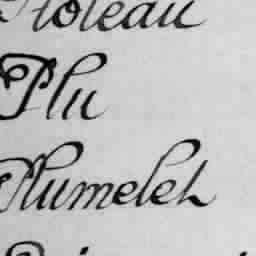 Ploteau
Plu
Plumelet